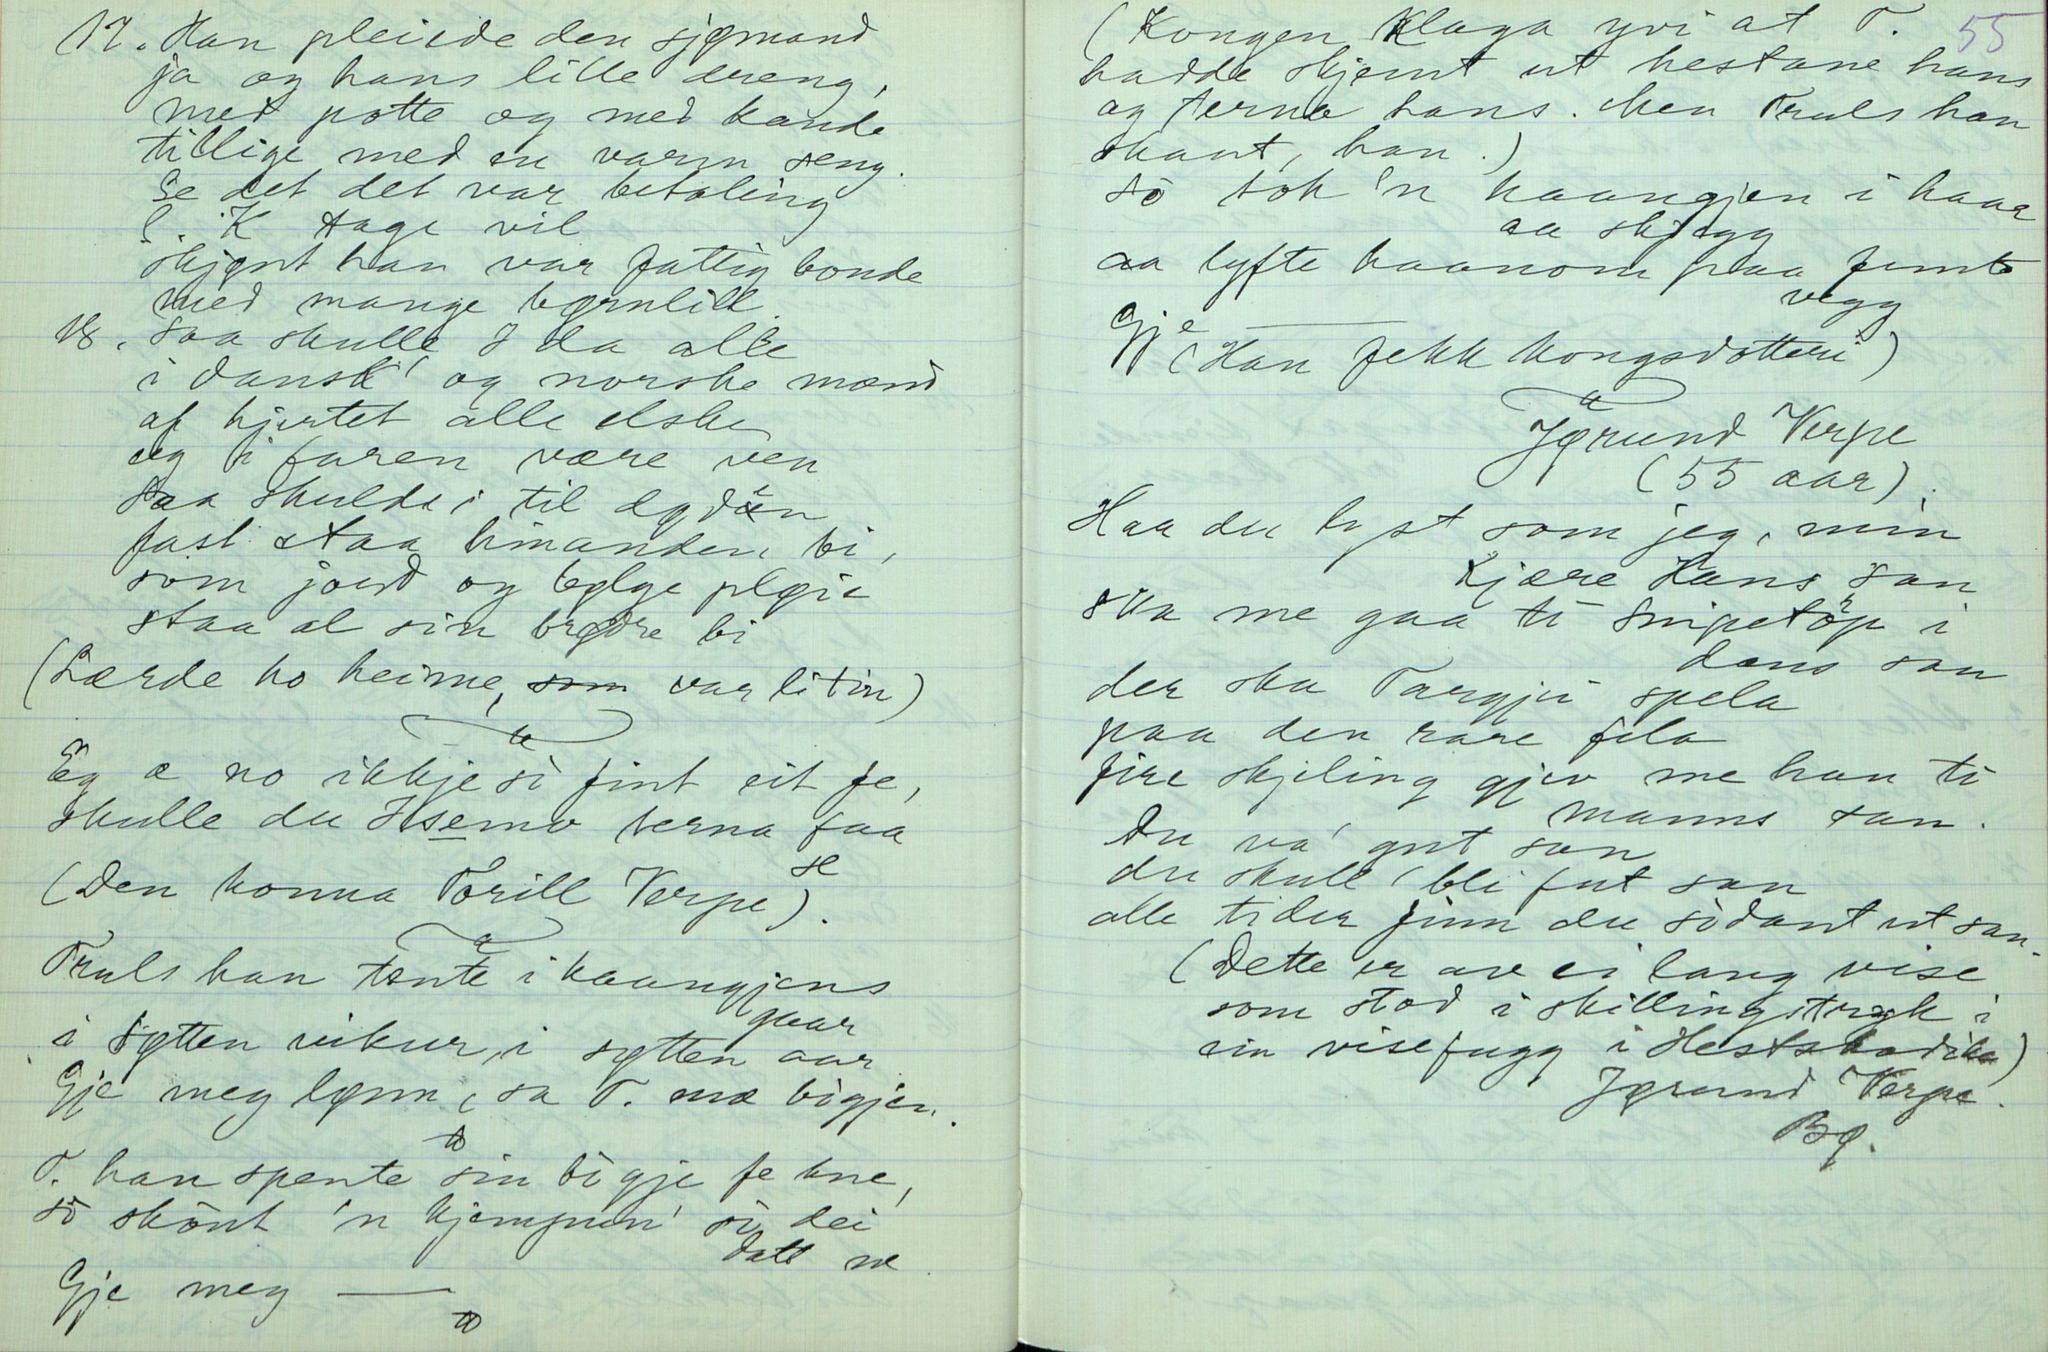 17. Han pleiede den sjømand
ja og hans lille dreng,
med potte og med kande
tillige med en varm seng.
Se det det var betaling
K Aage vil
skjønt han var fattig bonde
med mange børnlill.
18. saa skulle I da alle
i dansk' og norske mænd
af hjertet alle elske
og i faren være ven
Saa skulde i til døden
fast staa hinanden bi,
som jord og bølge pleie
staa al sin brødre bi
(Lærde ho heime, som var litin)
Eg æ no ikkje sò fint eit fe,
skulle du terna faa
(Den konna Torill Verpe).
Truls han tente i kaangjens
gaar
i søtten vikur, i søtten aar
Gje meg lønn, sa T. mæ bògjen.
T. han spente sin bògje fe kne,
sò skönt 'n kjempun' sò dei
datt ne
Gje meg —
55
(Kongen klaga yvi at T.
hadde skjemt ut hestane hans
og terna hans. Men Truls han
skaut, han.)
sò tok 'n kaangjen i haar
aa skjegg
aa lyfte haanom paa femte
vegg
Gje —
(Han fekk kongsdotteri)
Jørund Verpe
(55 aar)
Haa du lyst som jeg, min
kjære Hans san
ska me gaa ti Snipetörp i
dans san
der ska Targjei spela
paa den rare fela
fire skjeling gjev me han ti
manns san.
Du va' gut san
du skull' bli fut san
alle tider finn du sòdant ut san.
(Dette er av ei lang vise
som stod i skillingstryk i
ein visefugg i )
Jørund Verpe.
Bø.